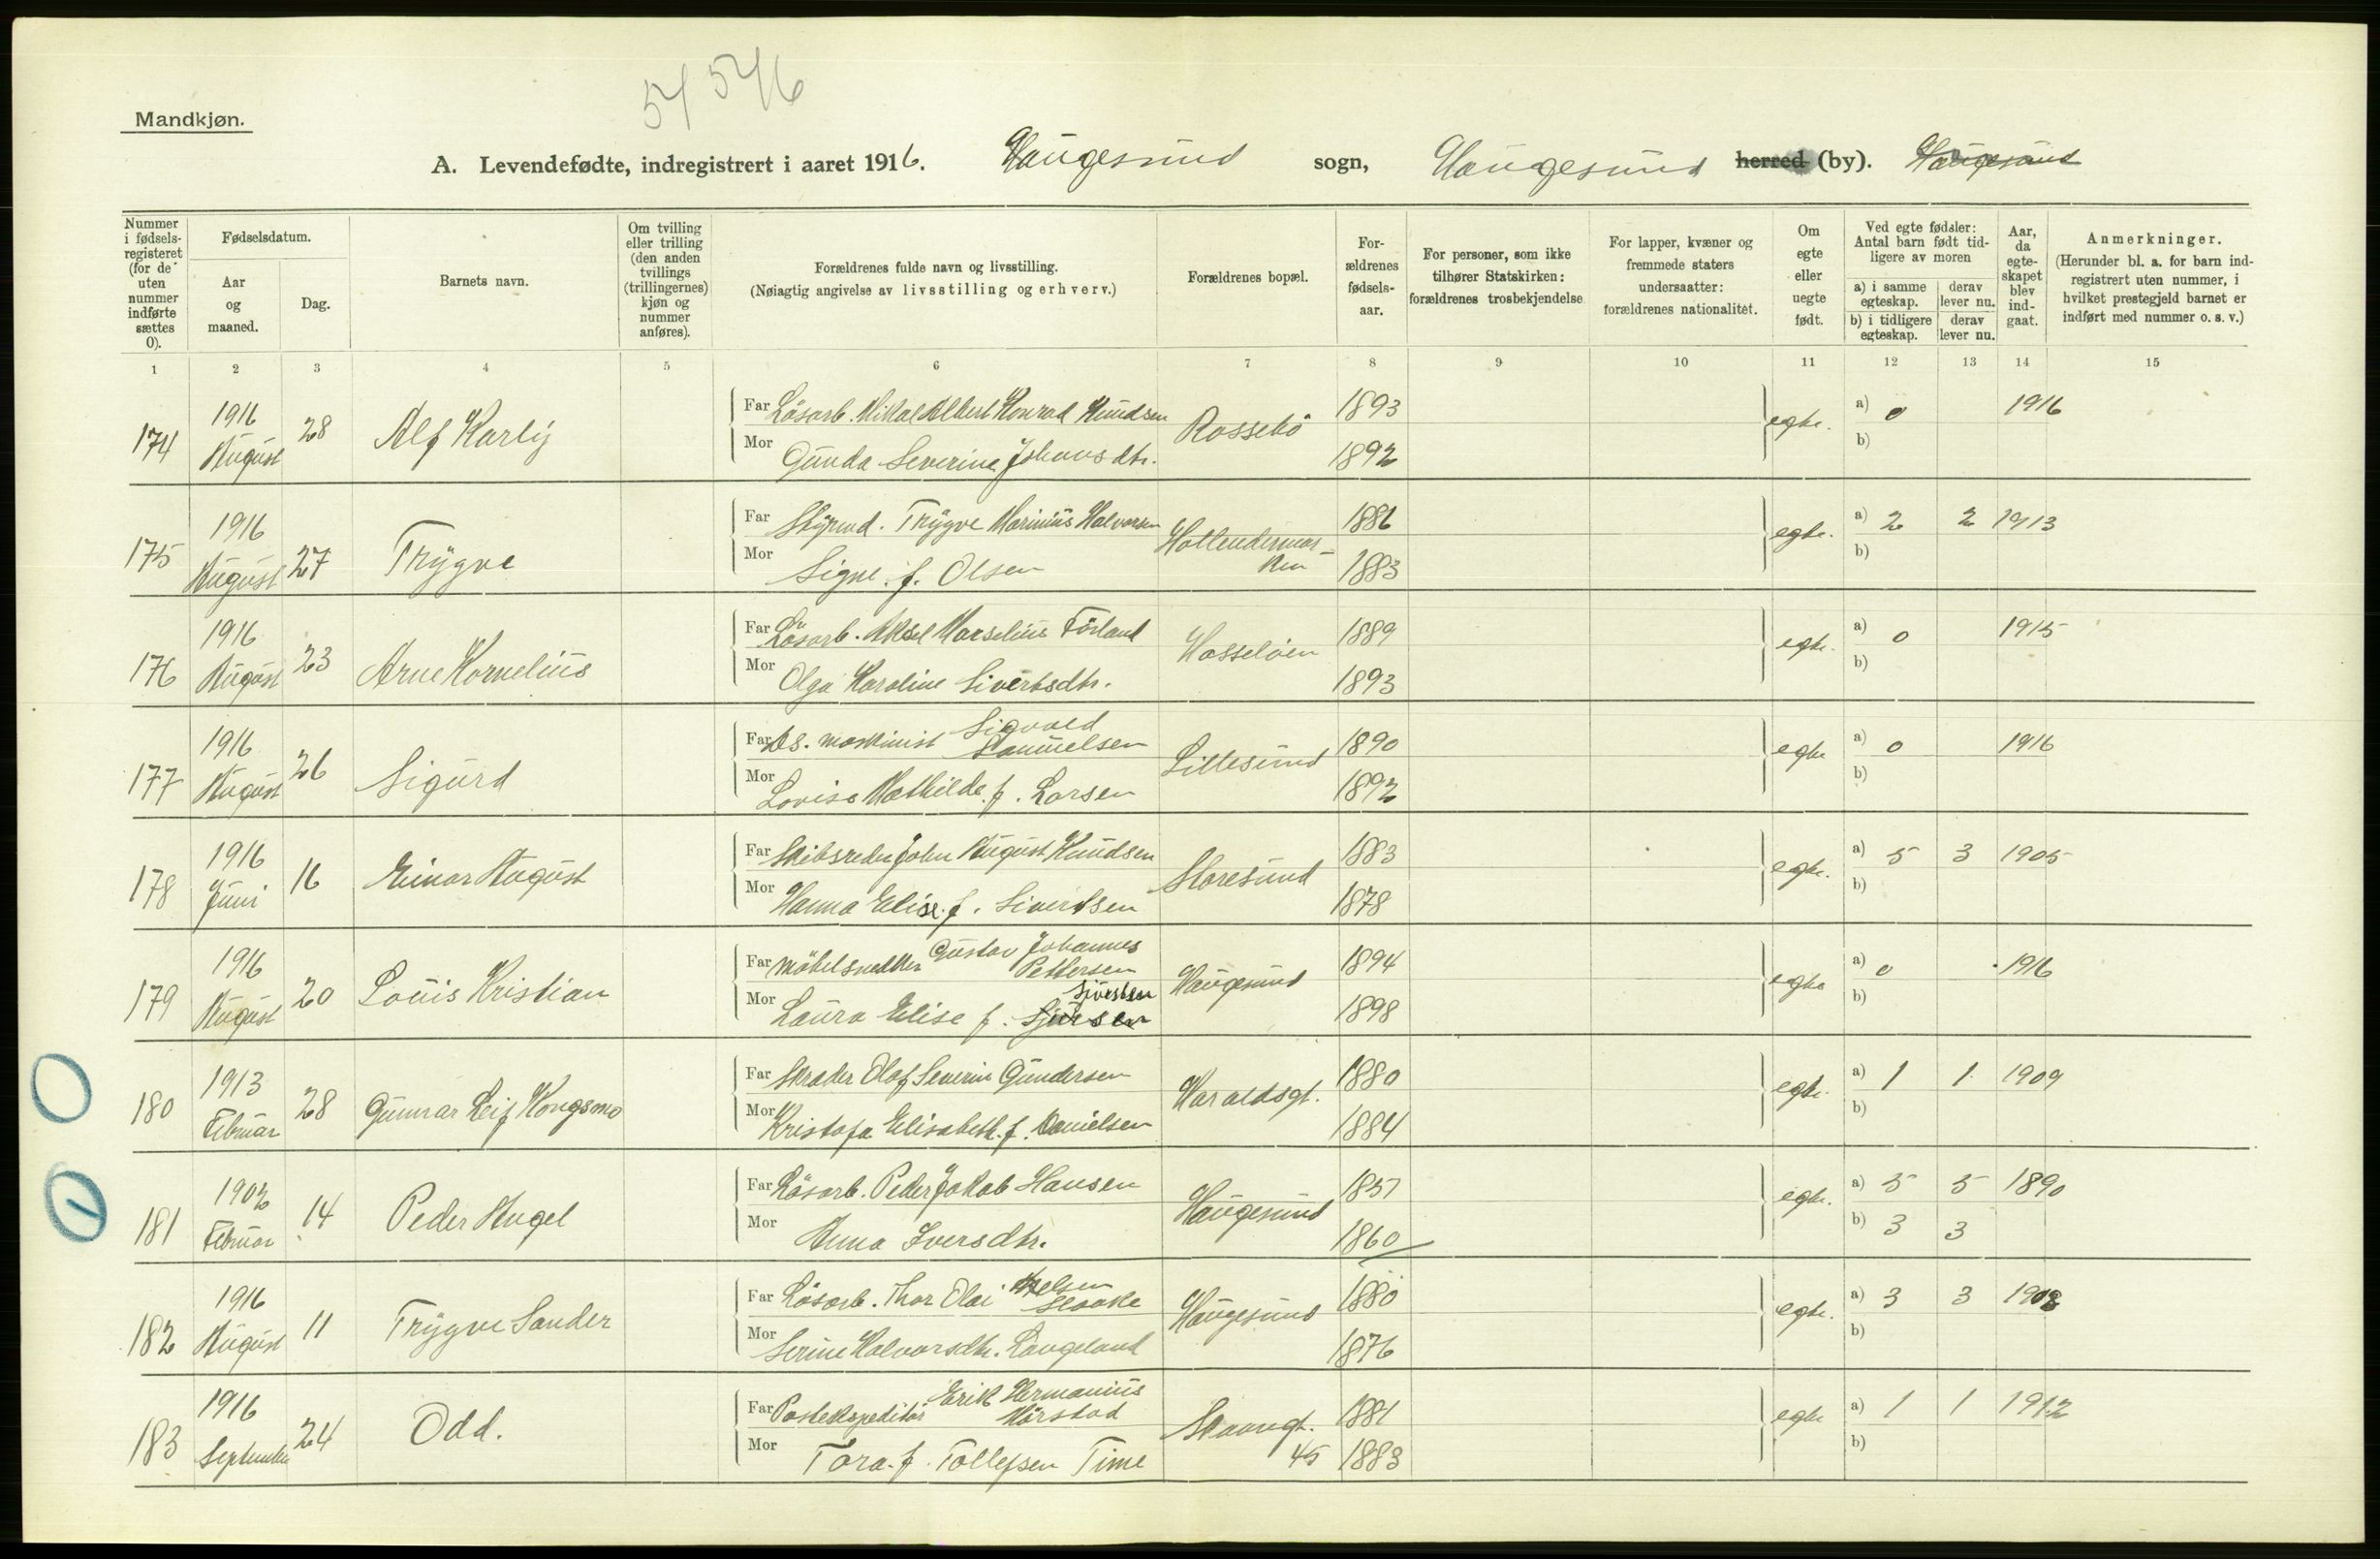 54 546
Mandkjøn.
A. Levendefødte, indregistrert i aaret 1916. Haugesund sogn, Haugesund herred (by). Haugesund
Nummer i fødselsregisteret (for de uten nummer indførte sættes 0).
Fødselsdatum.
Aar og maaned.
Dag.
Barnets navn.
Om tvilling eller trilling (den anden tvillings (trillingernes) kjøn og nummer anføres).
Forældrenes fulde navn og livsstilling.
(Nøiagtig angivelse av livsstilling og erhverv.)
Forældrenes bopæl.
For-ældrenes fødsels-aar.
For personer, som ikke tilhører Statskirken: forældrenes trosbekjendelse
For lapper, kvæner og fremmede staters undersaatter: forældrenes nationalitet.
Om egte eller uegte født.
Ved egte fødsler: Antal barn født tid-ligere av moren
a) i samme egteskap.
derav lever nu.
b) i tidligere egteskap.
derav lever nu.
Aar, da egte-skapet blev ind-gaat.
Anmerkninger.
(Herunder bl. a. for barn ind-registrert uten nummer, i hvilket prestegjeld barnet er indført med nummer o. s. v.)
1 2 3 4 5 6 7 8 9 10 11 12 13 14 15
174 1916 August 28 Alf Karly
Far Lösarb. Mikal Albert Konrad Knudsen Rossebö 1893 egte. a) 0 1916
Mor Gunda Severine Johansdtr. 1892 b)
175 1916 August 27 Trygve
Far Styrmd. Trygve Marinius Halvorsen 1886 egte. a) 2 2 1913
Mor Signe f. Olsen 1883 b)
176 1916 August 23 Arne Kornelius
Far Lösarb. Aksel Marselius Förland Hasselöen 1889 egte. a) 0 1915
Mor Olga Karoline Sivertsdtr. 1893 b)
177 1916 August 26 Sigurd
Far Ds. maskinist Sigvald Samuelsen Lillesund 1890 egte a) 0 1916
Mor Lovise Mathilde f. Larsen 1892 b)
178 1916 Juni 16 Einar August
Far Skibsreder John August Knudsen Storesund 1883 egte. a) 5 3 1905
Mor Hanna Elise f. Sivertsen 1878 b)
179 1916 August 20 Louis Kristian
Far Möbelsnekker Gustav Johannes Pettersen Haugesund 1894 egte a) 0 1916
Mor Laura Elise f. Sjursen Sivertsen 1898 b)
180 1913 Februar 28 Gunnar Leif Kongsmo
Far Skræder Olaf Severin Gundersen Haraldsgt. 1880 egte. a) 1 1 1909
Mor Kristofa Elisabeth f. Danielsen 1884 b)
181 1902 Februar 14 Peder Angel
Far Lösarb. Peder Jakob Hansen Haugesund 1857 egte. a) 5 5 1890
Mor Anna Iversdtr. 1860 b) 3 3
182 1916 August 11 Trygve Sander
Far Lösarb. Thor Olai Haugesund 1880 egte. a) 3 3 1908
Mor Serine Halvorsdtr. Langeland 1876 b)
183 1916 September 24 Odd.
Far Postekspeditör Erik Hermanius Mörstad Skaaregt. 45 1881 egte a) 1 1 1912
Mor Tora f. Tollefsen Time 1883 b)